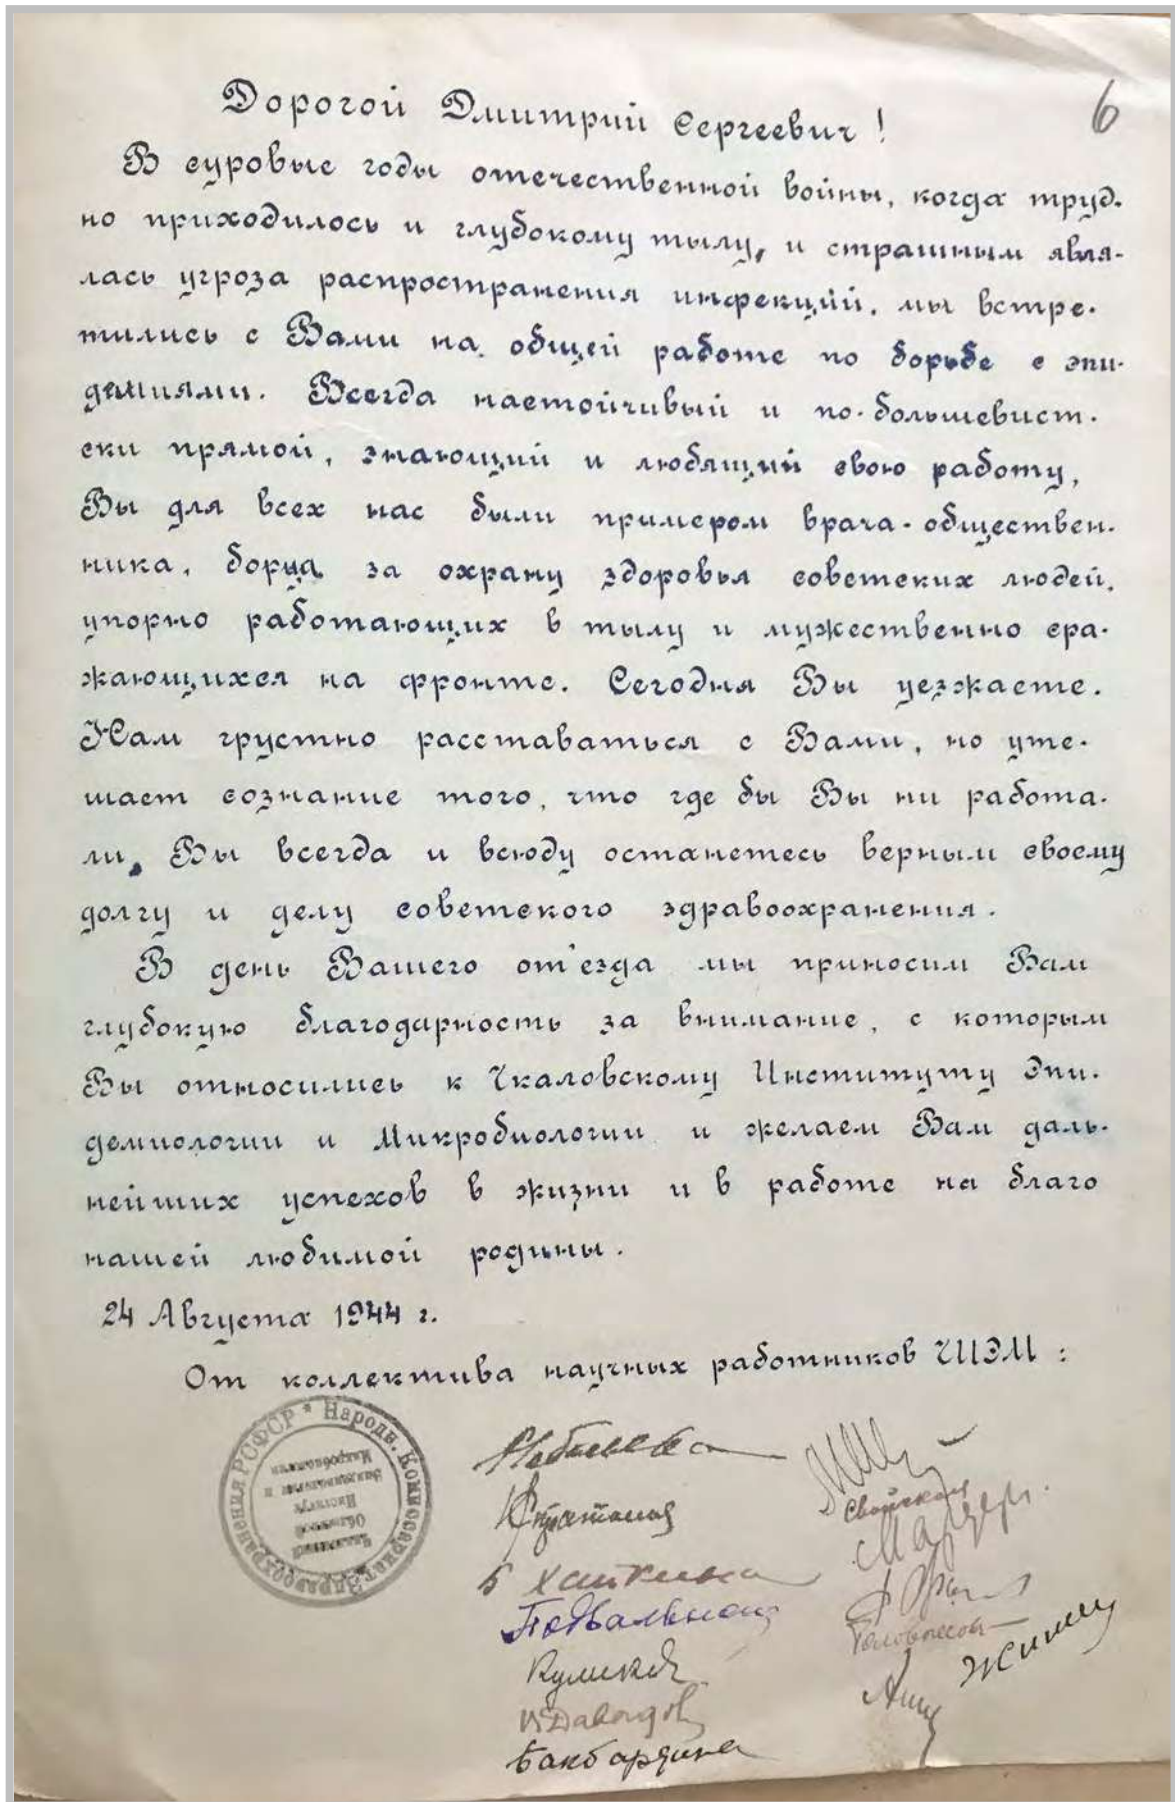 6
Дорогой Дмитрий Сергеевич!
В суровые годы отечественной войны, когда труд-
но приходилось и глубокому тылу, и страшным явля-
лась угроза распространения инфекций, мы встре-
тились с Вами на общей работе по борьбе с эпи-
демиями. Всегда настойчивый и по-большевист-
ски прямой, знающий и любящий свою работу,
Вы для всех нас были примером врача-обществен-
ника, борца за охрану здоровья советских людей,
упорно работающих в тылу и мужественно сра-
жающихся на фронте. Сегодня Вы уезжаете.
Нам грустно расставаться с Вами, но уте-
шает сознание того, что где бы Вы ни работа-
ли, Вы всегда и всюду останетесь верным своему
долгу и делу советского здравоохранения.
В день Вашего от'езда мы приносим Вам
глубокую благодарность за внимание, с которым
Вы относились к Чкаловскому Институту Эпи-
демиологии и Микробиологии и желаем Вам даль-
нейших успехов в жизни и в работе на благо
нашей любимой родины.
24 Августа 1944 г.
От коллектива научных работников ЧИЭМ:
Народн. Комиссариат Здравоохранения РСФСР *
Областной
Институт
Эпидемиологии и
Микробиологии
Б Хайкина
Подвальная
Куликов
Давыдов